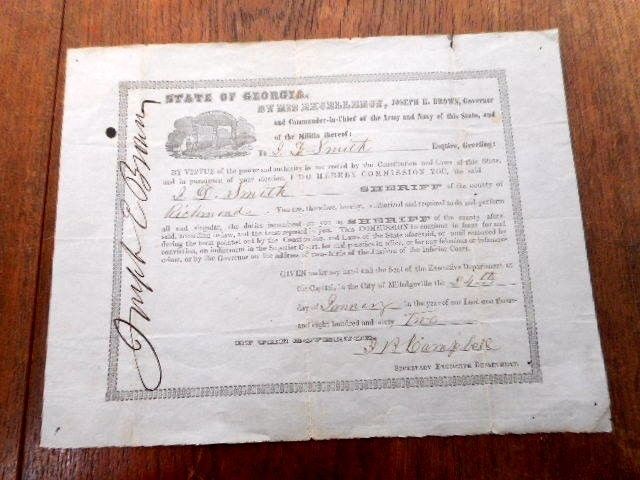 STATE OF GEORGIA.
BY HIS EXCELLENCY, JOSEPH E. BROWN, Governor
and Commander-in-Chief of the Army and Navy of this State, and
of the Militia thereof:
To J D Smith Esquire, Greeting:
BY VIRTUE of the power and authority in me vested by the Constitution and Laws of this State,
and in pursuance of your election, I DO HEREBY COMMISSION YOU, the said
J D. Smith SHERIFF of the county of
Richmond. You are, therefore, hereby authorized and required to do and perform
all and singular, the duties incumbent on you as SHERIFF of the county afore-
said, according to law, and the trust reposed in you. This COMMISSION to continue in force for and
during the term pointed out by the Constitution and Laws of the State aforesaid, or until removed by
conviction, on indictment in the Superior Court, for mal-practice in office, or for any felonious or infamous
crime, or by the Governor on the address of two-thirds of the Justices of the Inferior Court.
GIVEN under my hand and the Seal of the Executive Department at
the Capitol, in the City of Milledgeville the 24th
day of January in the year of our Lord one thous-
and eight hundred and sixty two
BY THE GOVERNOR:
Campbell
SECRETARY EXECUTIVE DEPARTMENT.
Joseph E Brown